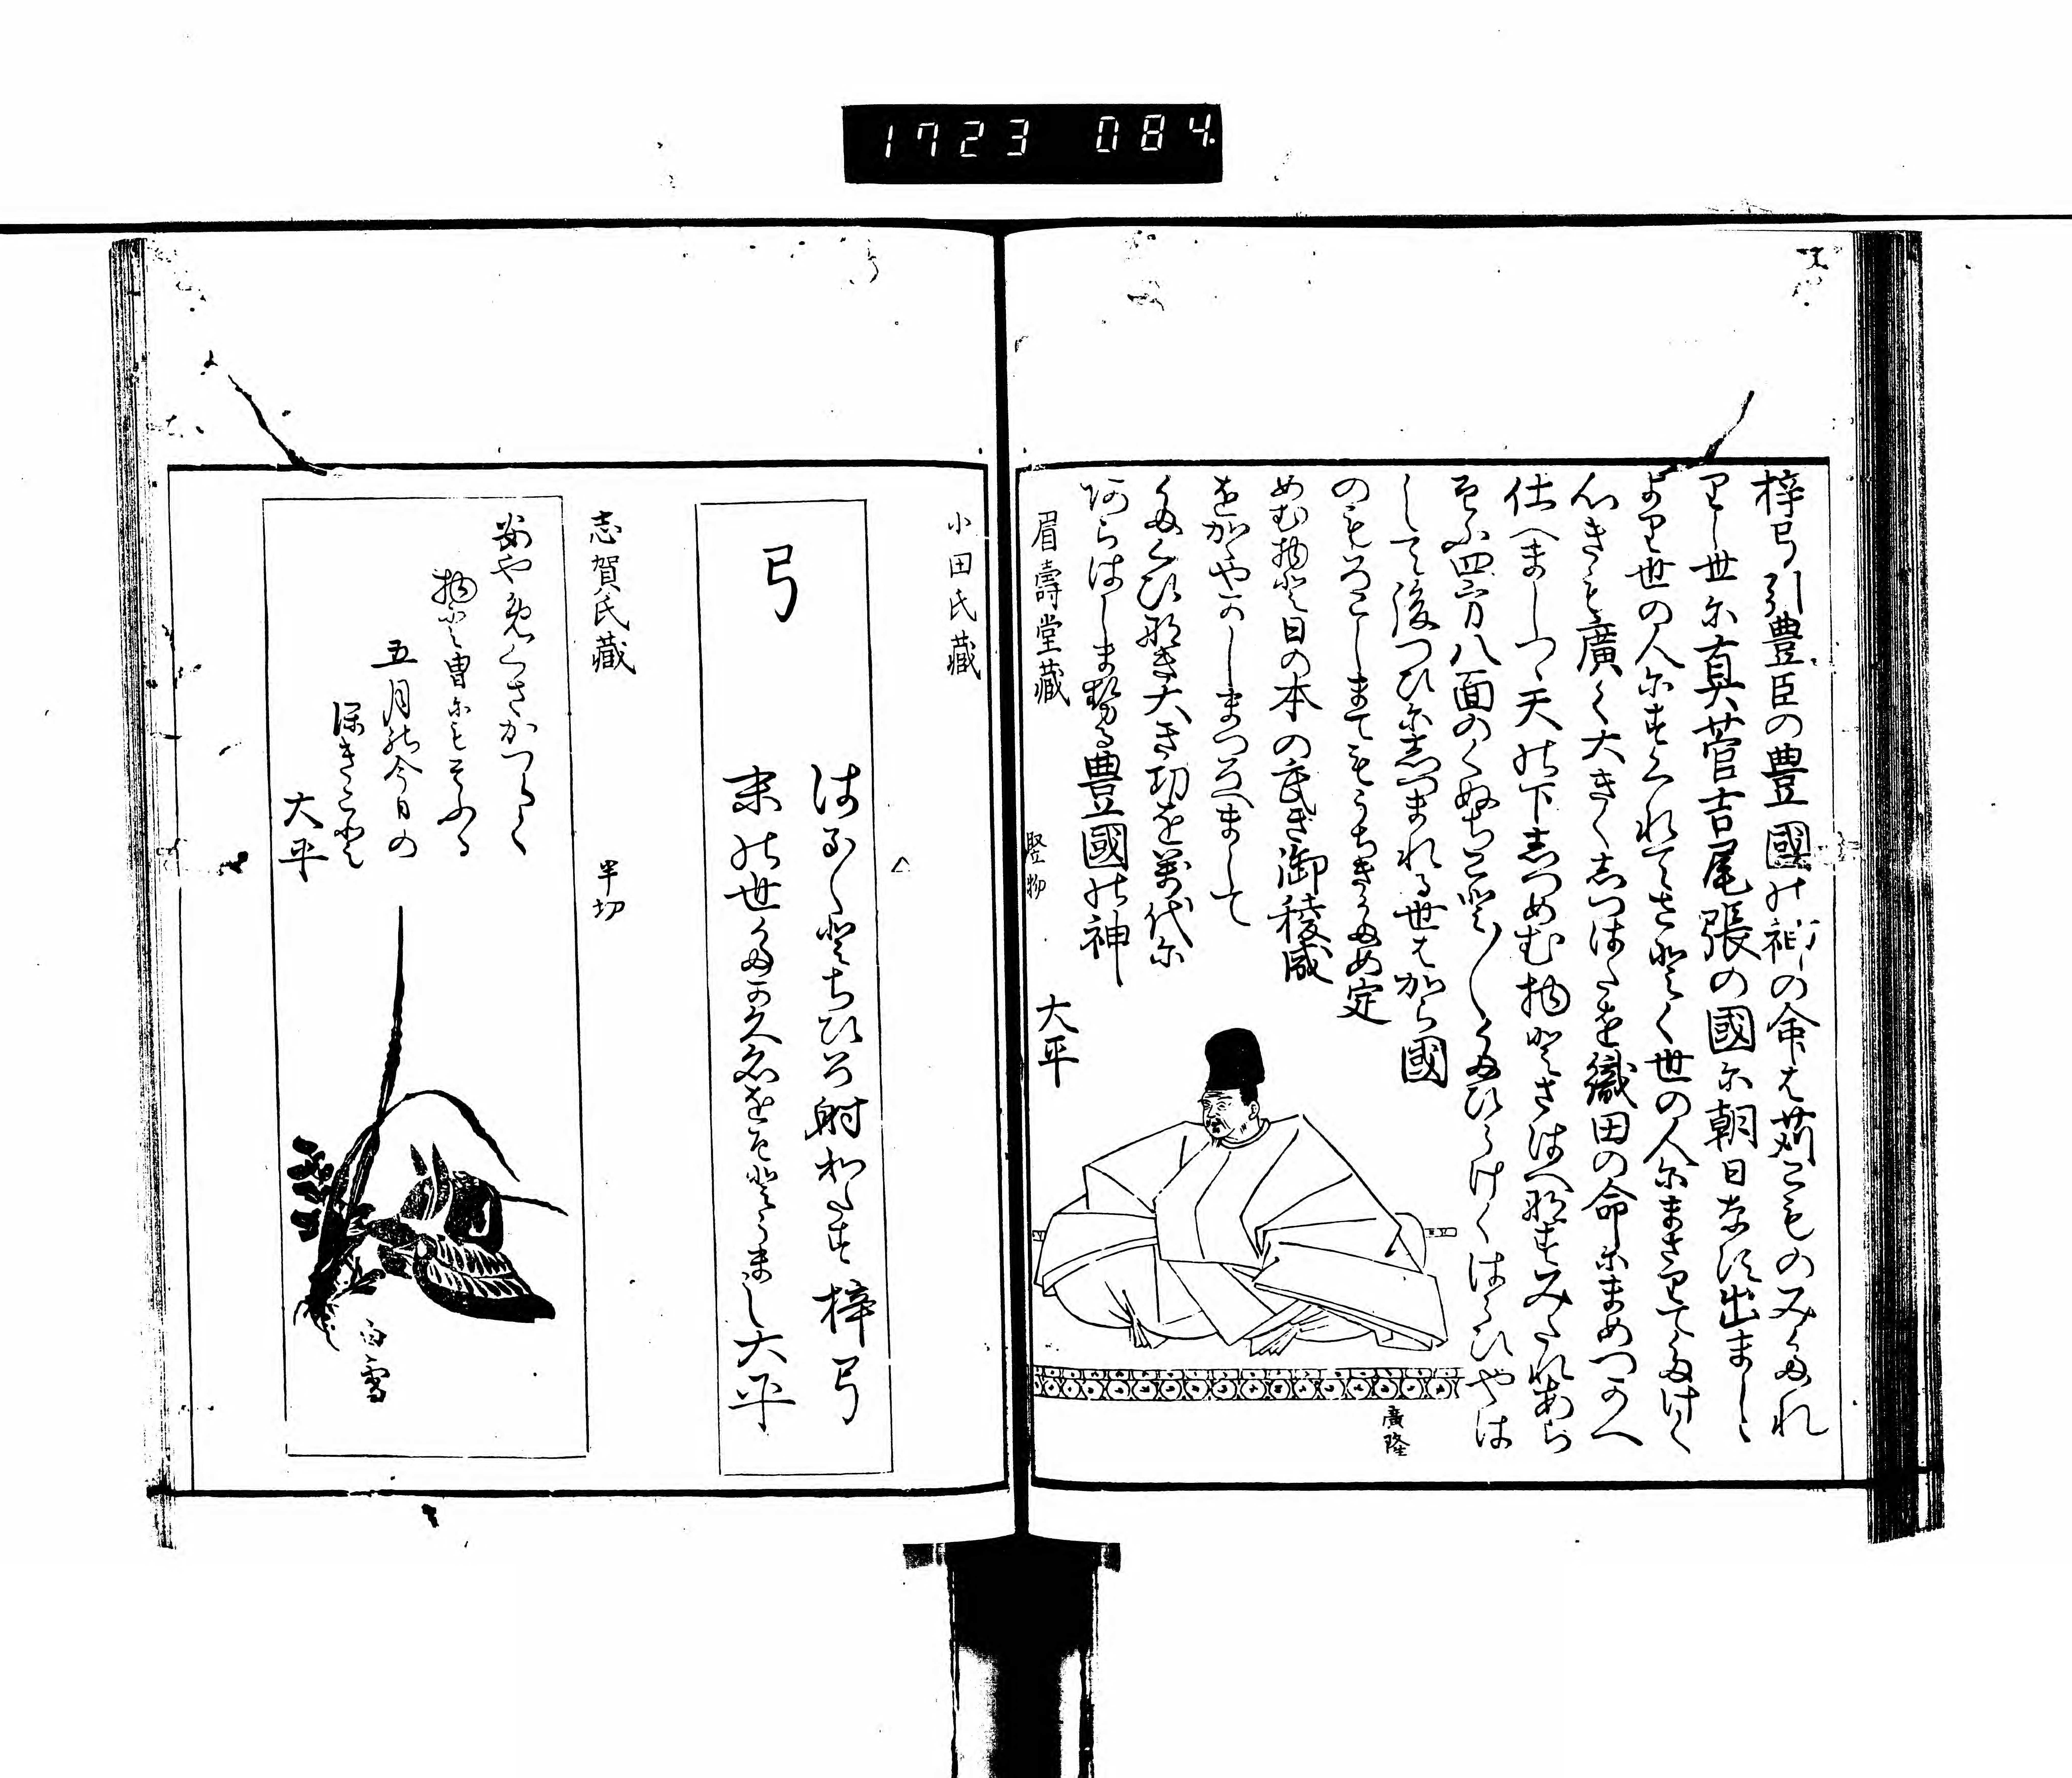 1723 084.
梓弓引豊臣の豊國の神の命は苅こものみたれ
りし世に真菅吉尾張の國に朝日なす出まし
より世の人にすくれてさとく世の人にまさりてたけく
心きも廣く大きくしつはたを織田の命にまめつかへ
仕へましつゝ天の下しつめむ物とさはへ那すみたれあら
そふ四方八面のくぬちこと〳〵くたひらけくはらひやは
して後つひにしつまれる世はから國
のもろこしまてもうちきため定
めむ物と日の本の武き御稜威
をかゝやかしまつろへまして
たくひ那き大き功を萬代に
阿らはしませる豊國の神
大平
廣隆
眉壽堂蔵
竪物
小田氏蔵
弓
はる〳〵とちひろ射わたす梓弓
末の世たかくおとそとまし大平
志賀氏蔵
半切
あやめくさかつらく
物と曽にもそふる
五月の今日の
深きこと
大平
白雪